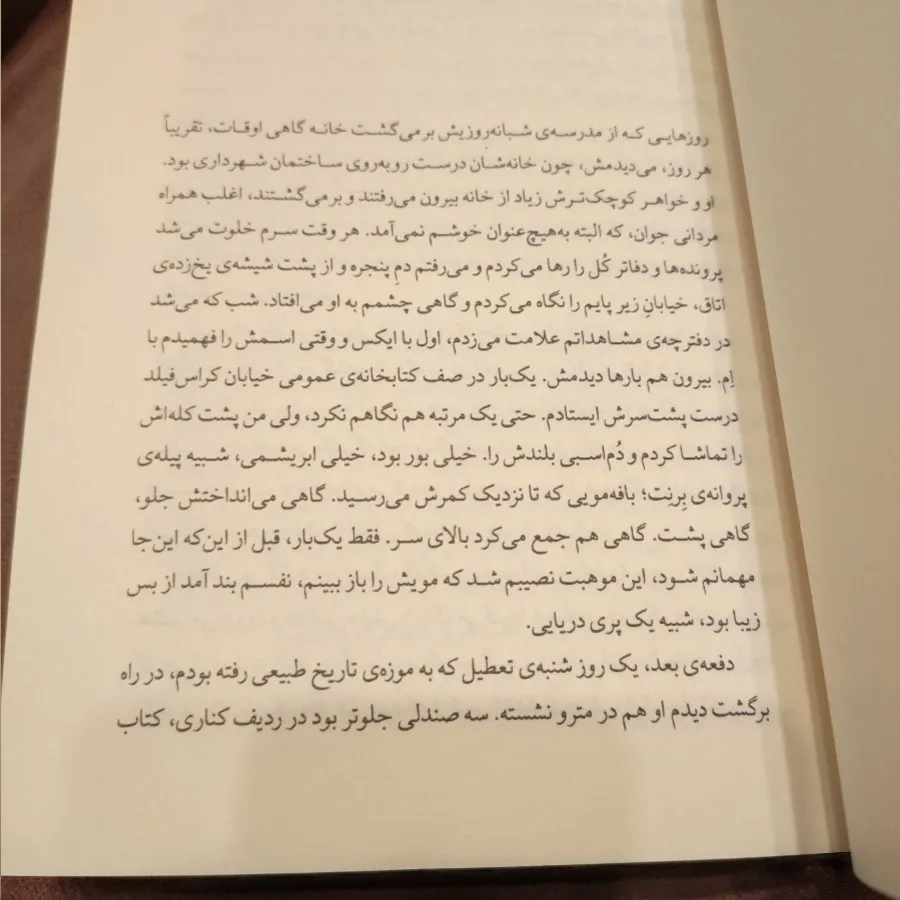 روزهایی که از مدرسه‌ی شبانه‌روزیش برمی‌گشت خانه گاهی اوقات، تقریباً
هر روز، می‌دیدمش، چون خانه‌شان درست روبه‌روی ساختمان شهرداری بود.
او و خواهر کوچک‌ترش زیاد از خانه بیرون می‌رفتند و برمی‌گشتند، اغلب همراه
مردانی جوان، که البته به‌هیچ‌عنوان خوشم نمی‌آمد. هر وقت سرم خلوت می‌شد
پرونده‌ها و دفاتر کُل را رها می‌کردم و می‌رفتم دمِ پنجره و از پشت شیشه‌ی یخ‌زده‌ی
اتاق، خیابانِ زیر پایم را نگاه می‌کردم و گاهی چشمم به او می‌افتاد. شب که می‌شد
در دفترچه‌ی مشاهداتم علامت می‌زدم، اول با ایکس و وقتی اسمش را فهمیدم با
اِم. بیرون هم بارها دیدمش. یک‌بار در صف کتابخانه‌ی عمومی خیابان کراس‌فیلد
درست پشت‌سرش ایستادم. حتی یک مرتبه هم نگاهم نکرد، ولی من پشت کله‌اش
را تماشا کردم و دُم‌اسبی بلندش را. خیلی بور بود، خیلی ابریشمی، شبیه پیله‌ی
پروانه‌ی بِرنِت؛ بافه‌مویی که تا نزدیک کمرش می‌رسید. گاهی می‌انداختش جلو،
گاهی پشت. گاهی هم جمع می‌کرد بالای سر. فقط یک‌بار، قبل از این‌که این‌جا
مهمانم شود، این موهبت نصیبم شد که مویش را باز ببینم، نفسم بند آمد از بس
زیبا بود، شبیه یک پری دریایی.
دفعه‌ی بعد، یک روز شنبه‌ی تعطیل که به موزه‌ی تاریخ طبیعی رفته بودم، در راه
برگشت دیدم او هم در مترو نشسته. سه صندلی جلوتر بود در ردیف کناری، کتاب